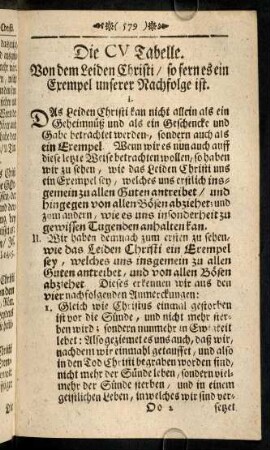 (179)
Die CV Tabelle.
Von dem Leiden Christi / so fern es ein
Exempel unserer Nachfolge ist.
I.
DAs Leiden Christi kan nicht allein als ein
Geheimnüß und als ein Geschencke und
Gabe betrachtet werden, sondern auch als
ein Exempel. Wenn wir es nun auch auff
diese letzte Weise betrachten wollen, so haben
wir zu sehen, wie das Leiden Christi uns
ein Exempel sey, welches uns erstlich ins-
gemein zu allen Guten antreibet / und
hingegen von allen Bösen abziehet: und
zum andern, wie es uns insonderheit zu
gewissen Tugenden anhalten kan.
II. Wir haben demnach zum ersten zu sehen,
wie das Leiden Christi ein Exempel
sey, welches uns insgemein zu allen
Guten antreibet, und von allen Bösen
abziehet. Dieses erkennen wir aus den
vier nachfolgenden Anmerckungen:
1. Gleich wie Christus einmal gestorben
ist vor die Sünde, und nicht mehr ster-
ben wird: sondern nunmehr in Ewigkeit
lebet: Also geziemet es uns auch, daß wir,
nachdem wir einmahl getauffet, und also
in den Tod Christi begraben worden sind,
nicht mehr der Sünde leben, sondern viel-
mehr der Sünde sterben, und in einem
geistlichen Leben, in welches wir sind ver-
Oo 2 setzet